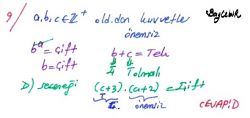 9) a,b,c ∈ Z⁺ old.dan kuvvetler önemsiz
b^a = Çift b + c = Tek
b = Çift Ç T olmalı
D) seçeneği (c+3).(a+2) = Çift
Ç. önemsiz
CEVAP: D